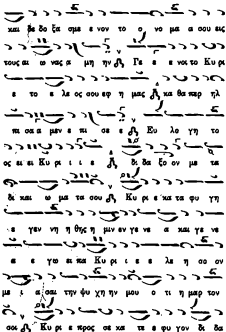 και δε δο ξα σμε ε νον το ο νο μα α σου εις
τους αι ω νας α μη ην Γε ε ε νοι το Κυ ρι
ε το ε λε ος σου εφ η μας κα θα περ ηλ
πι σα α μεν ε πι σε ε Ευ λο γη το
ος ει ει Κυ ρι ι ι ε δι δα ξο ον με τα
δι και ω μα τα σου Κυ ρι ε κα τα φυ γη
ε γεν νη η θης η μιν εν γε νε α και γε νε
ε ε γω ει πα Κυ ρι ι ε ε λε η σο ον
με ι α σαι την ψυ χη ην μου ο τι η μαρ τον
σοι Κυ ρι ε προς σε κα τε ε φυ γον δι δα